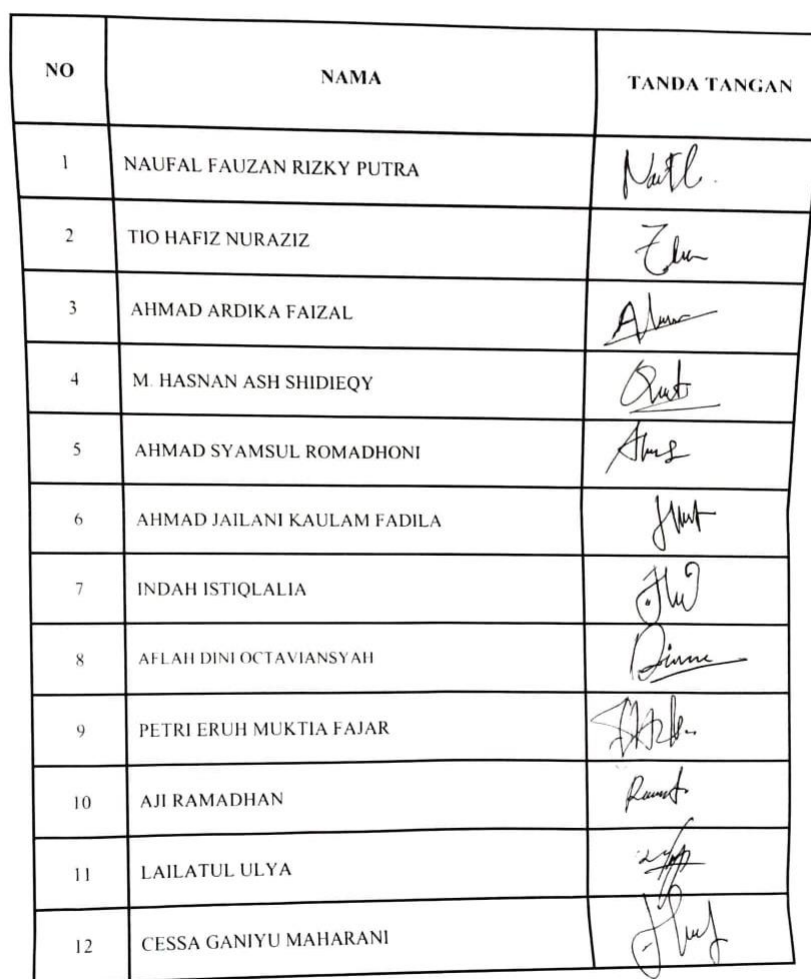 NO NAMA TANDA TANGAN
1 NAUFAL FAUZAN RIZKY PUTRA
2 TIO HAFIZ NURAZIZ
3 AHMAD ARDIKA FAIZAL
4 M. HASNAN ASH SHIDIEQY
5 AHMAD SYAMSUL ROMADHONI
6 AHMAD JAILANI KAULAM FADILA
7 INDAH ISTIQLALIA
8 AFLAH DINI OCTAVIANSYAH
9 PETRI ERUH MUKTIA FAJAR
10 AJI RAMADHAN
11 LAILATUL ULYA
12 CESSA GANIYU MAHARANI